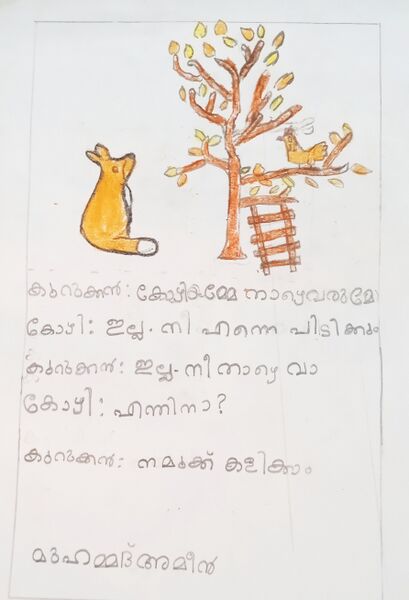 കുറുക്കൻ: കോഴിയമ്മേ നാഴെവരുമോ
കോഴി: ഇല്ല. നി എന്നെ പിടിക്കും
കുറുക്കൻ: ഇല്ല. നീ താഴെ വാ
കോഴി: എന്തിനാ?
കുറുക്കൻ: നമുക്ക് കളിക്കാം
മുഹമ്മദ് അമീൻ